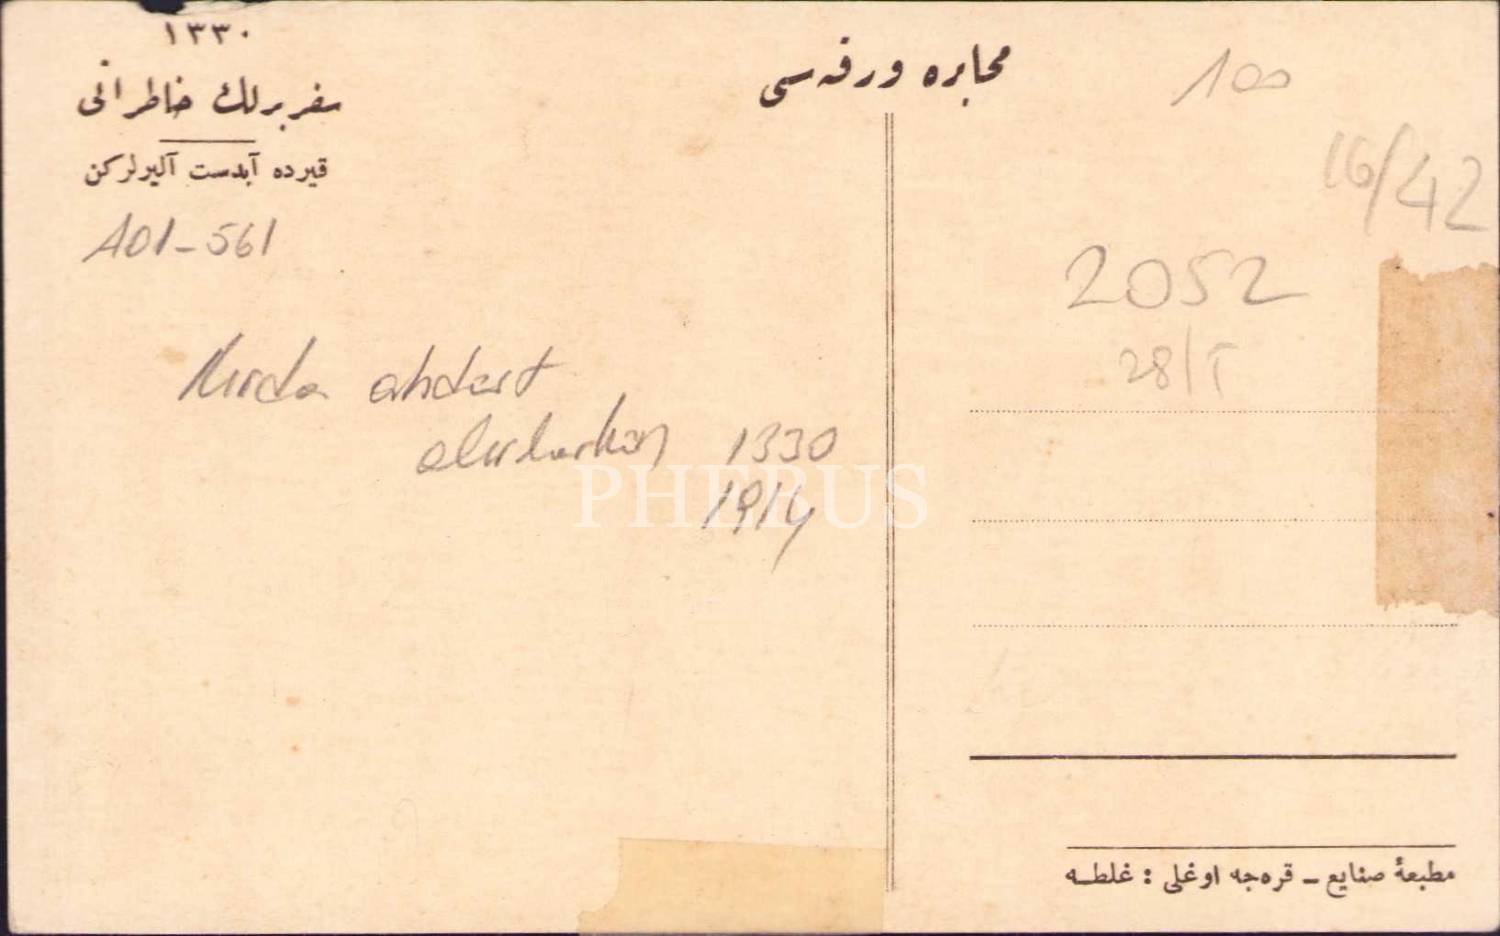 ١٣٣٠
سفر برلك خاطراتى
قيرده آبدست آليرلركن
A01-561
Kırda abdest
alırlarken 1330
1914
مخابره ورقه‌سى
100
16/42
2052
28/T
PHEBUS
مطبعهٔ صنايع ــ قره‌جه اوغلى : غلطـه